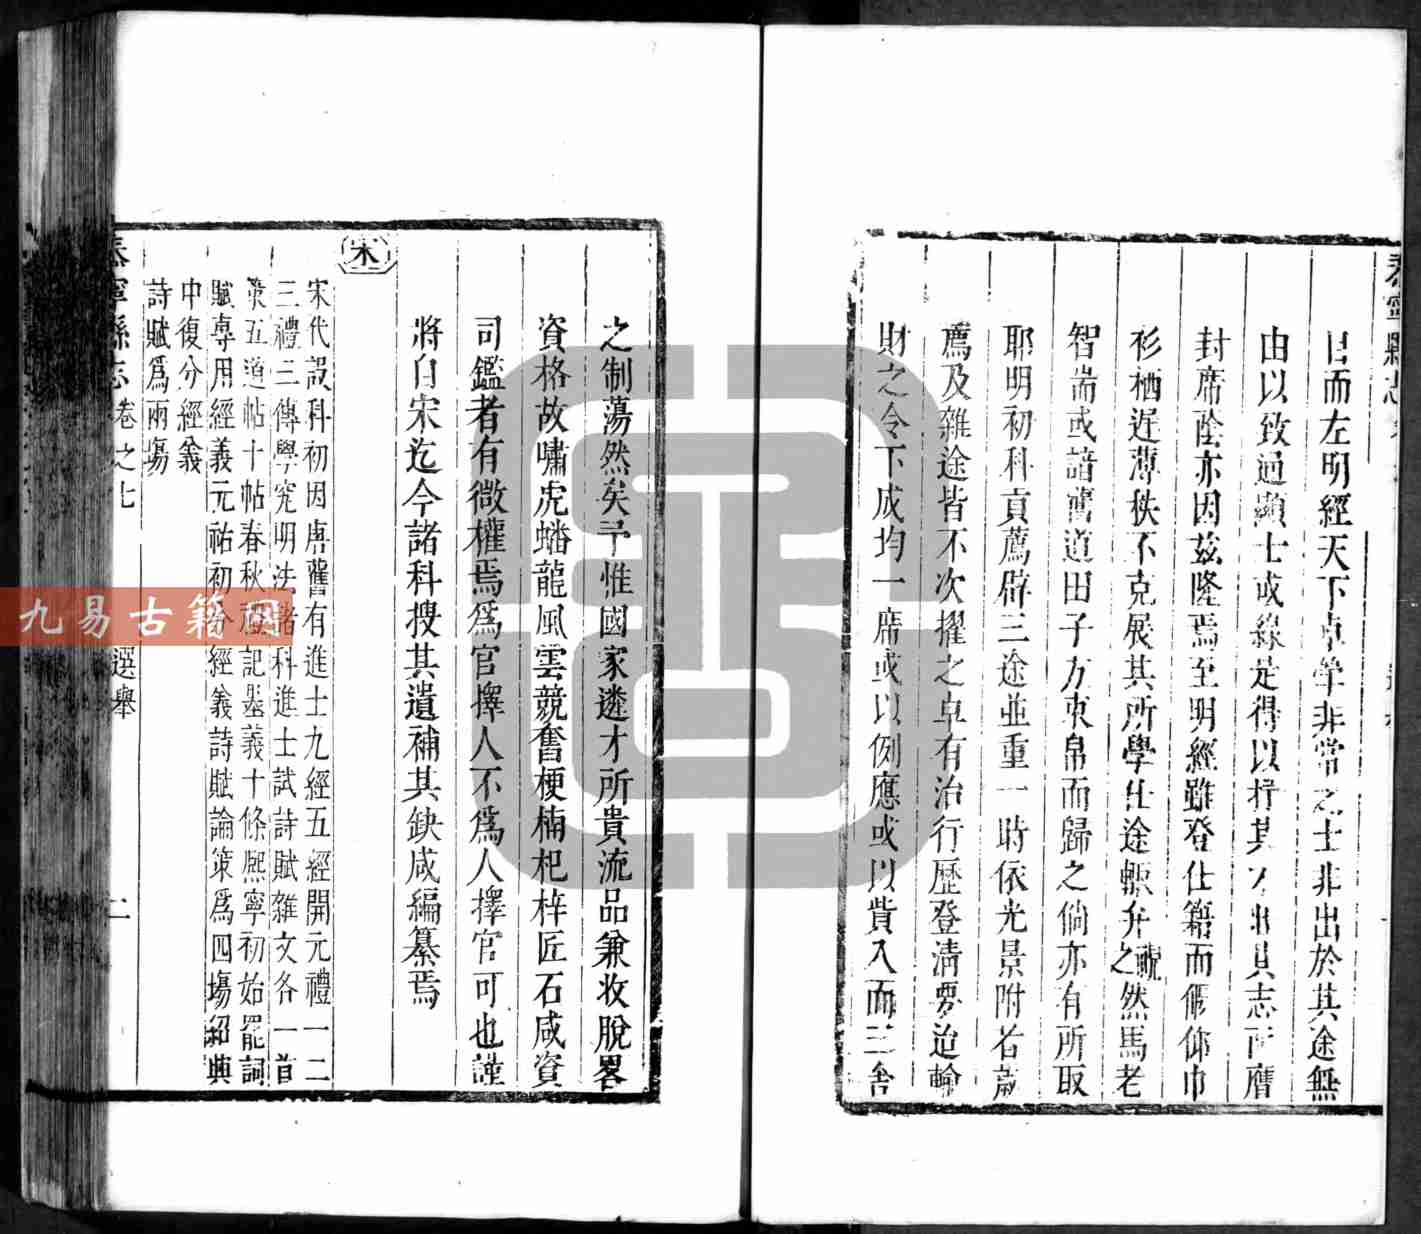 目而左明經天下卓犖非常之士非出於其途無
由以致通顯士或緣是得以抒其才
封席陰亦因茲隆焉至明經雖登仕籍而俯仰巾
衫栖遲薄秩不克展其所學仕途輒弁髦之然馬老
智耑或諳舊道田子方束帛而歸之倘亦有所取
耶明初科貢薦辟三途並重一時依光景附若
薦及雜途皆不次擢之卓有治行歷登清要迨輸
財之令下成均一席或以例應或以貲入而三舍
之制蕩然矣予惟國家遴才所貴流品兼收脫畧
資格故嘯虎蟠龍風雲競奮梗楠杞梓匠石咸資
司鑑者有微權焉為官擇人不為人擇官可也謹
將自宋迄今諸科搜其遺補其缺咸編纂焉
宋
宋代設科初因唐舊有進士九經五經開元禮一二
三禮三傳學究明法諸科進士試詩賦雜文各一首
策五道帖十帖春秋禮記墨義十條熙寧初始罷詞
賦專用經義元祐初分經義詩賦論策為四場紹興
中復分經義
詩賦為兩場
泰寧縣志 卷之七 選舉 二
九易古籍网